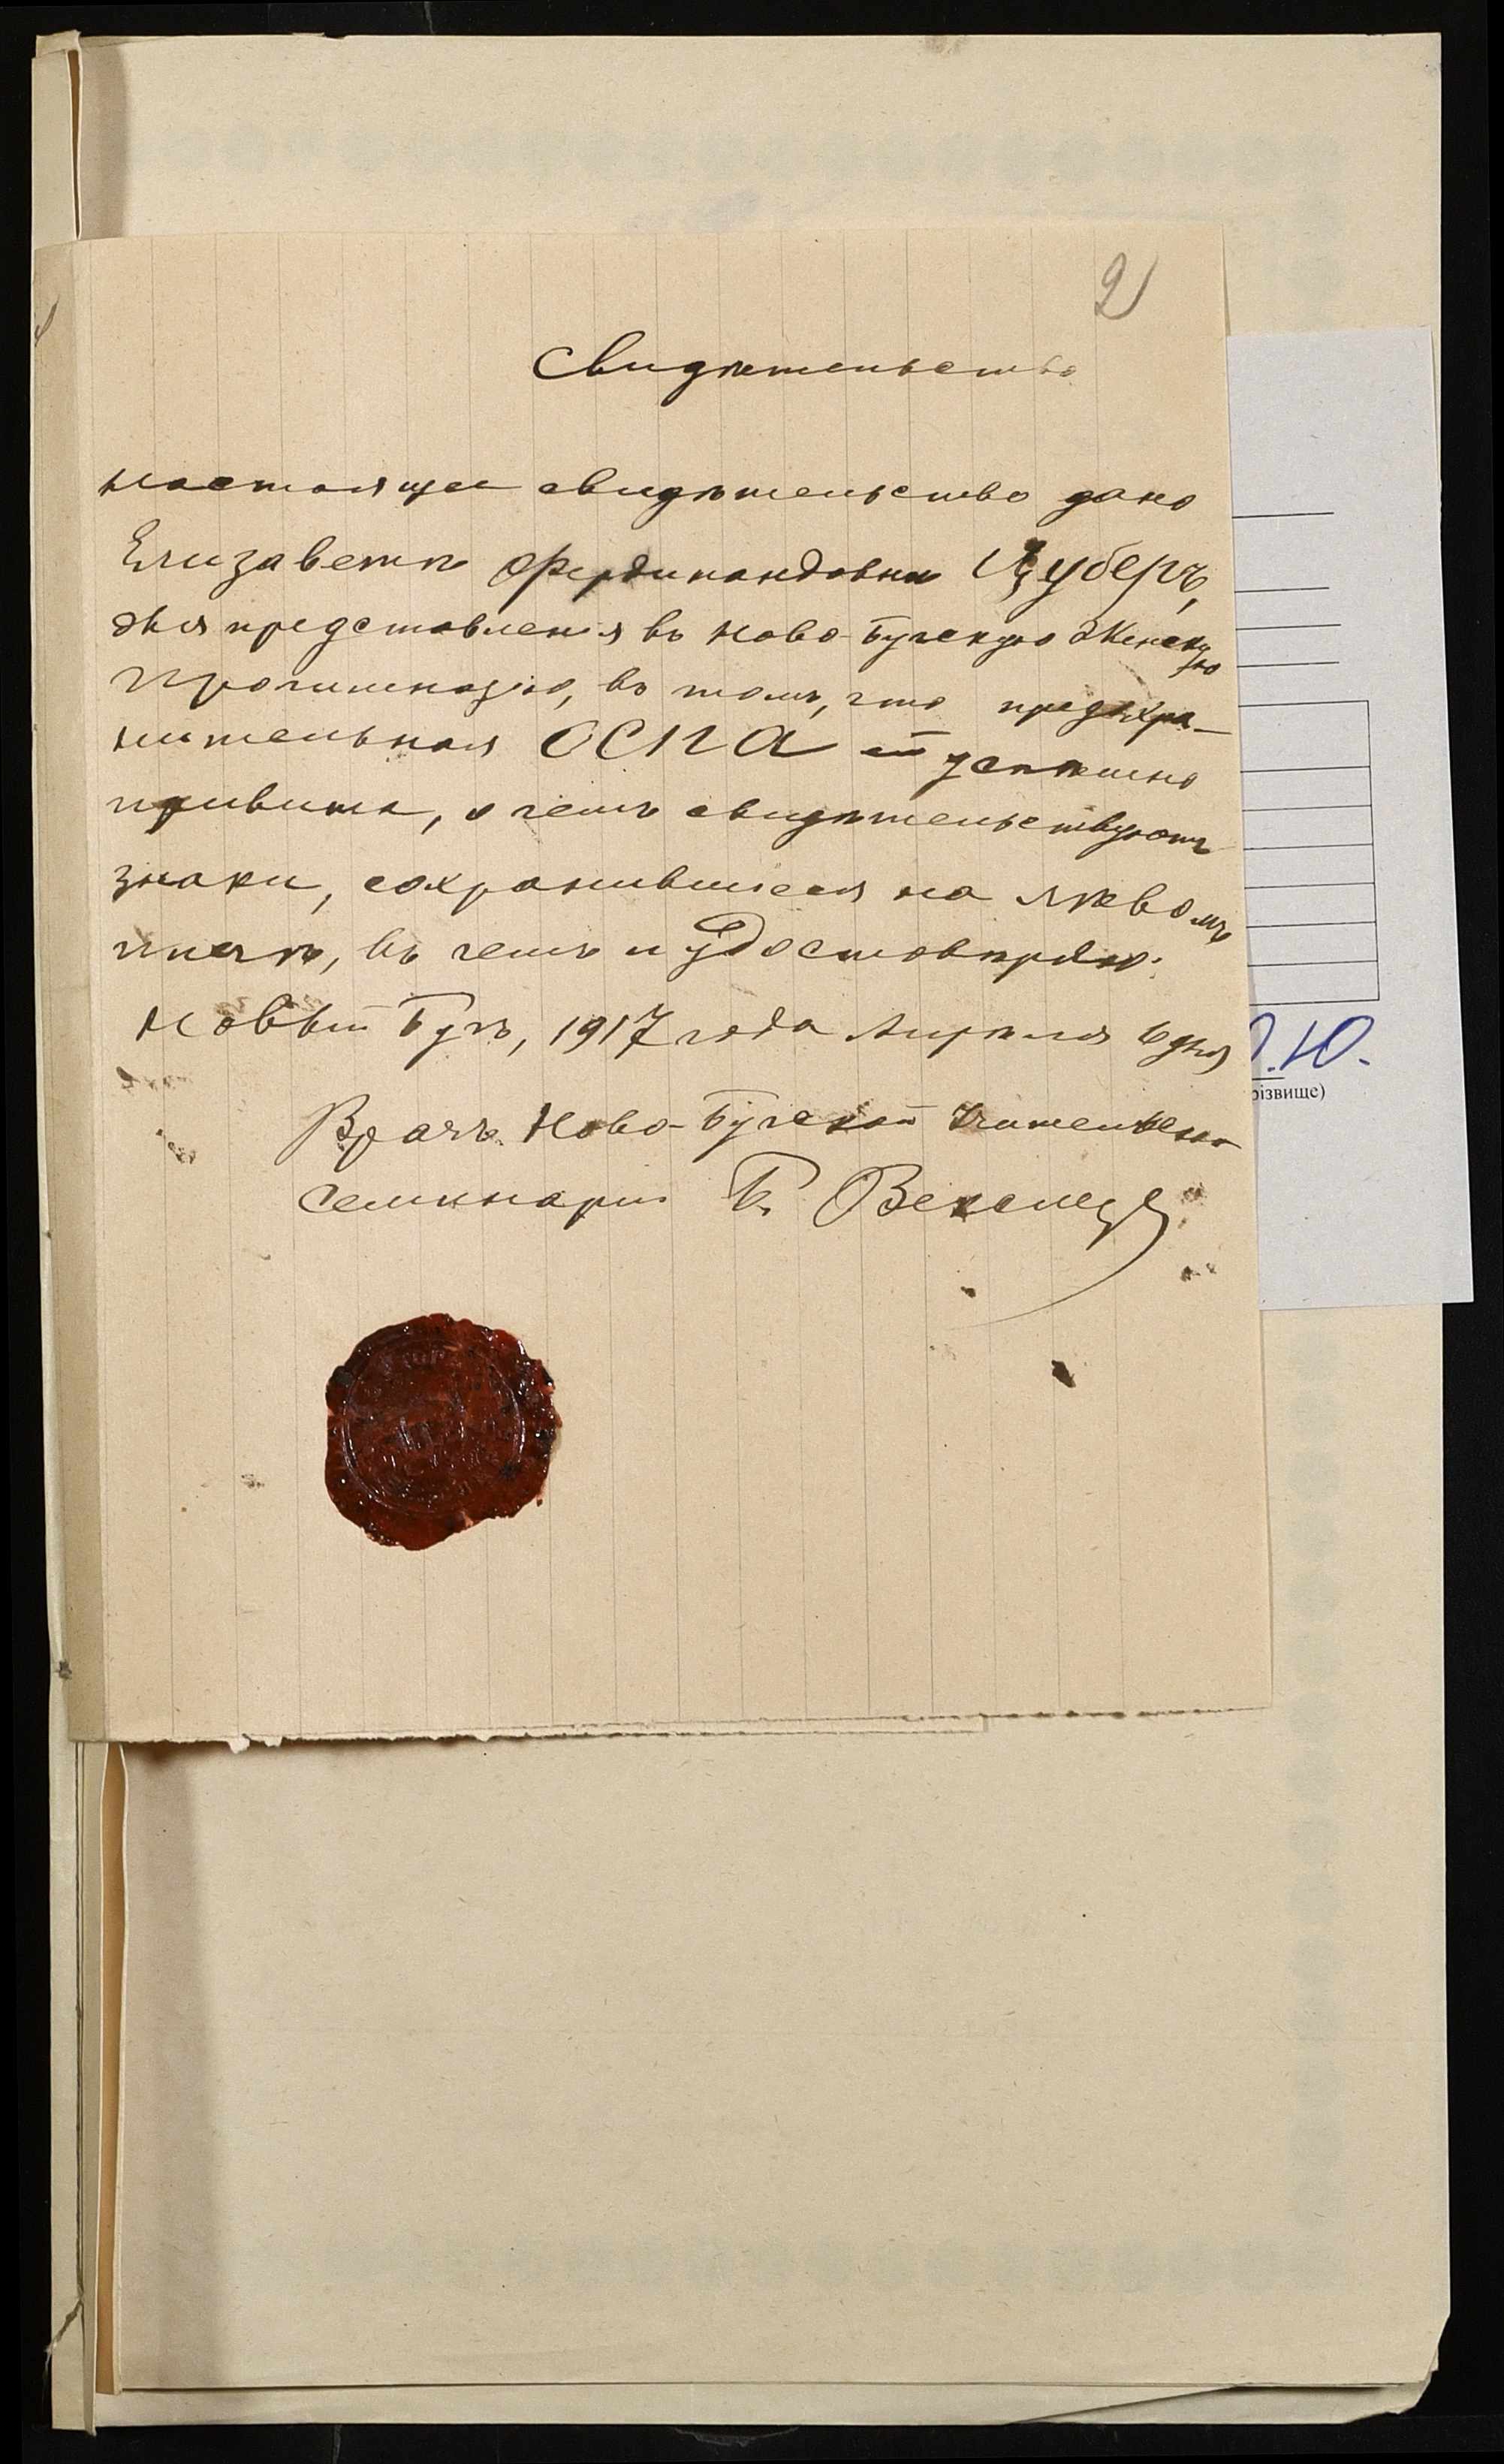 2
Свидѣтельство
настоящее свидѣтельство дано
Елизаветѣ Фердинандовнѣ Цуберъ,
для представленія въ Ново-Бугскую Женскую
Прогимназію, въ томъ, что предохра-
нительная ОСПА ей успѣшно
привита, о чемъ свидѣтельствуютъ
знаки, сохранившіеся на лѣвомъ
плечѣ, въ чемъ и удостовѣряю.
Новый Бугъ, 1917 года Апрѣля 6 дня
Врачъ Ново-Бугской Учительской
Семинаріи Б. Векслеръ
.Ю.
різвище)